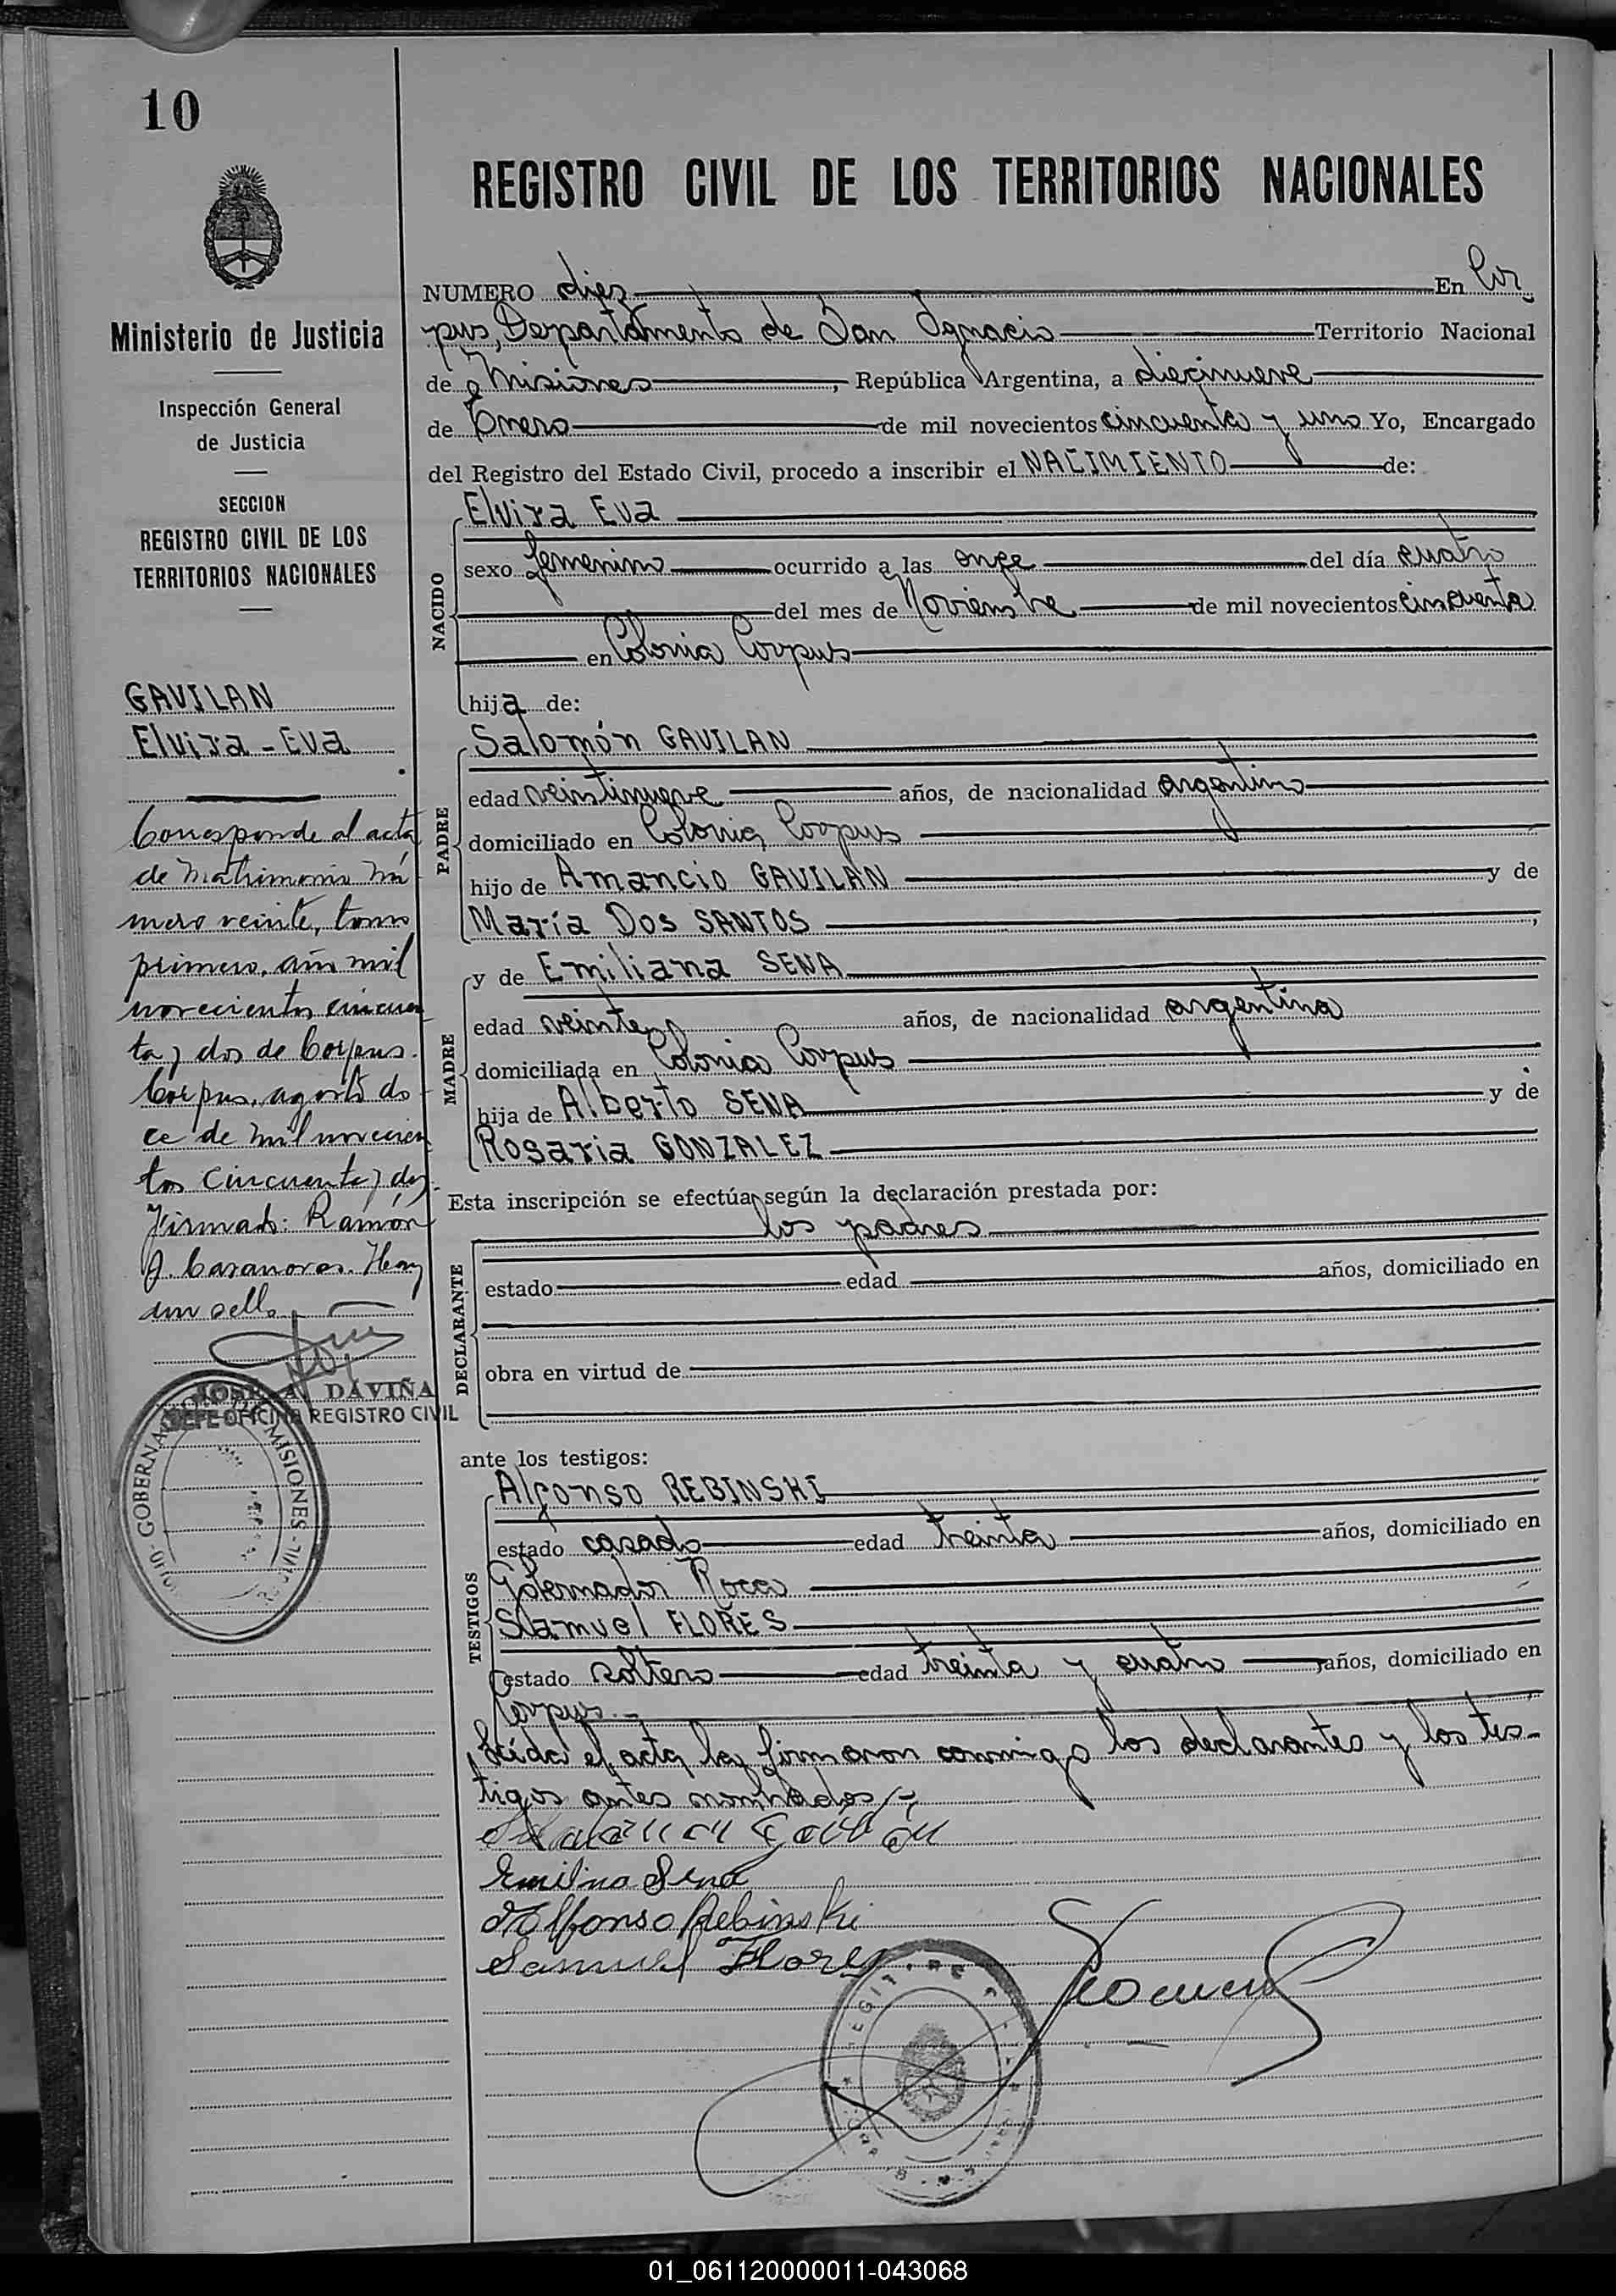 10
Ministerio de Justicia
Inspección General
de Justicia
SECCION
REGISTRO CIVIL DE LOS
TERRITORIOS NACIONALES
GAVILAN
Elvira - Eva
Corresponde al acta
de Matrimonio nú
mero veinte, tomo
primero, año mil
novecientos cincuen
ta y dos de Corpus.
Corpus, agosto do
ce de mil novecien
tos cincuenta y dos.
Firmado: Ramón
J. Casanovas. Hay
un sello
JOSE A. DAVIÑA
JEFE OFICINA REGISTRO CIVIL
GOBERNA MISIONES
REGISTRO CIVIL DE LOS TERRITORIOS NACIONALES
NUMERO diez En Cor
pus, Departamento de San Ignacio Territorio Nacional
de Misiones, República Argentina, a diecinueve
de Enero de mil novecientos cincuenta y uno Yo, Encargado
del Registro del Estado Civil, procedo a inscribir el NACIMIENTO de:
NACIDO
Elvira Eva
sexo femenino ocurrido a las once del día cuatro
del mes de Noviembre de mil novecientos cincuenta
en Colonia Corpus
hija de:
PADRE
Salomón GAVILAN
edad veintinueve años, de nacionalidad argentino
domiciliado en Colonia Corpus
hijo de Amancio GAVILAN y de
María Dos SANTOS
MADRE
y de Emiliana SENA
edad veinte años, de nacionalidad argentina
domiciliada en Colonia Corpus
hija de Alberto SENA y de
Rosaria GONZALEZ
Esta inscripción se efectúa según la declaración prestada por:
DECLARANTE
los padres
estado edad años, domiciliado en
obra en virtud de
ante los testigos:
TESTIGOS
Alfonso REBINSKI
estado casado edad treinta años, domiciliado en
Gobernador Roca
Samuel FLORES
estado soltero edad treinta y cuatro años, domiciliado en
Corpus.-
Leída el acta la firmaron conmigo los declarantes y los tes-
tigos antes nombrados
Salamon Gavilan
Emilina Sena
Alfonso Rebinski
Samuel Flores
01_061120000011-043068